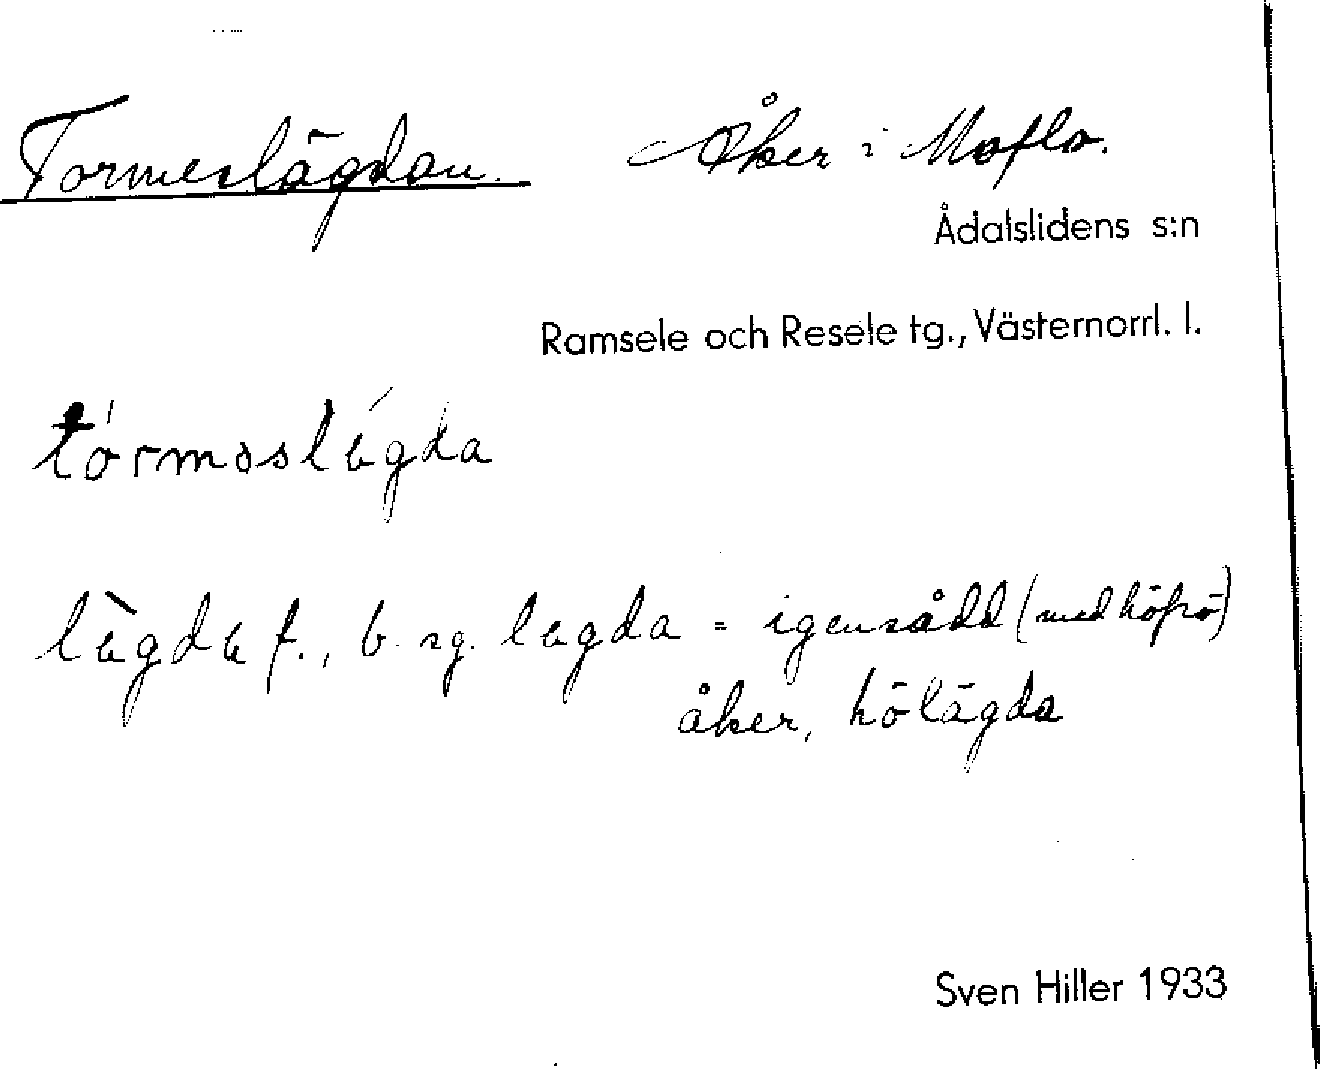 Tormeslägdan. Åker i Moflo.
Ådalslidens s:n
Ramsele och Resele tg., Västernorrl. l.
tórməslégda
lègde f., b. sg. legda = igensådd (med höfrö)
åker, hölägda
Sven Hiller 1933